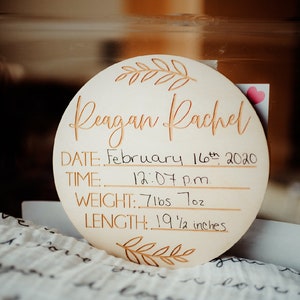 Reagan Rachel
DATE: February 16th 2020
TIME: 12:07 pm
WEIGHT: 7lbs 7oz
LENGTH: 19 1/2 inches